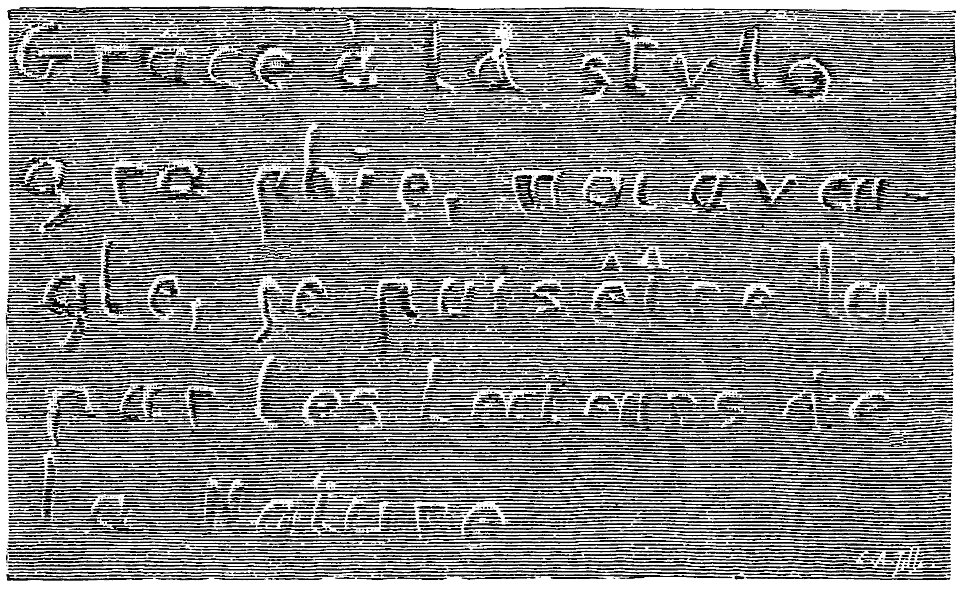 Grace à la stylo-
graphie, moi aveu-
gle, je puis être lu
par les lecteurs de
la Nature